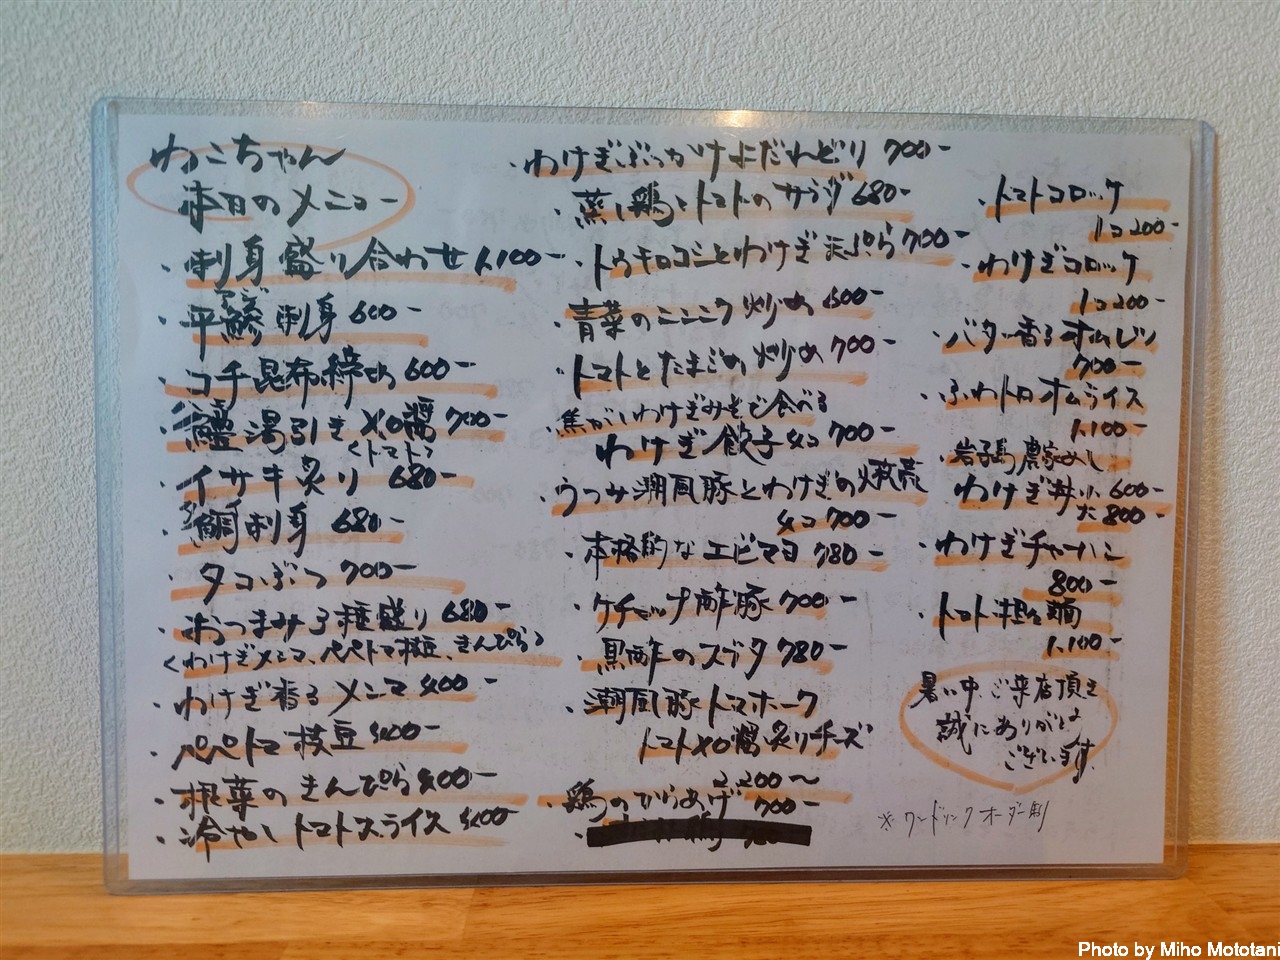 わこちゃん
本日のメニュー
・刺身盛り合わせ 1,100-
アジ
・平鯵刺身 600-
・コチ昆布締め 600-
・鱧湯引き XO醤 700-
<トマト>
・イサキ炙り 680-
・鯛刺身 680-
・タコぶつ 700-
・おつまみ3種盛り 680-
<わけぎメンマ、ペペトマ枝豆、きんぴら>
・わけぎ香るメンマ 400-
・ペペトマ枝豆 400-
・根菜のきんぴら 400-
・冷やしトマトスライス 400-
・わけぎぶっかけよだれどり 700-
・蒸し鶏とトマトのサラダ 680-
・トウモロコシとわけぎ天ぷら 700-
・青菜のニンニク炒め 600-
・トマトとたまごの炒め 700-
・焦がしわけぎみそで食べる
わけぎ餃子 4コ 700-
・うつみ潮風豚とわけぎの焼売
4コ 700-
・本格的なエビマヨ 780-
・ケチャップ酢豚 700-
・黒酢のスブタ 780-
・潮風豚トマホーク
トマトXO醤炙りチーズ
2,200~
・鶏のからあげ 700-
・トマトコロッケ
1コ 200-
・わけぎコロッケ
1コ 200-
・バター香るオムレツ
700-
・ふわトロオムライス
1,100-
・岩子島農家めし
わけぎ丼 小 600-
大 800-
・わけぎチャーハン
800-
・トマト担々麺
1,100-
暑い中、ご来店頂き
誠にありがとう
ございます。
※ワンドリンクオーダー制
Photo by Miho Mototani